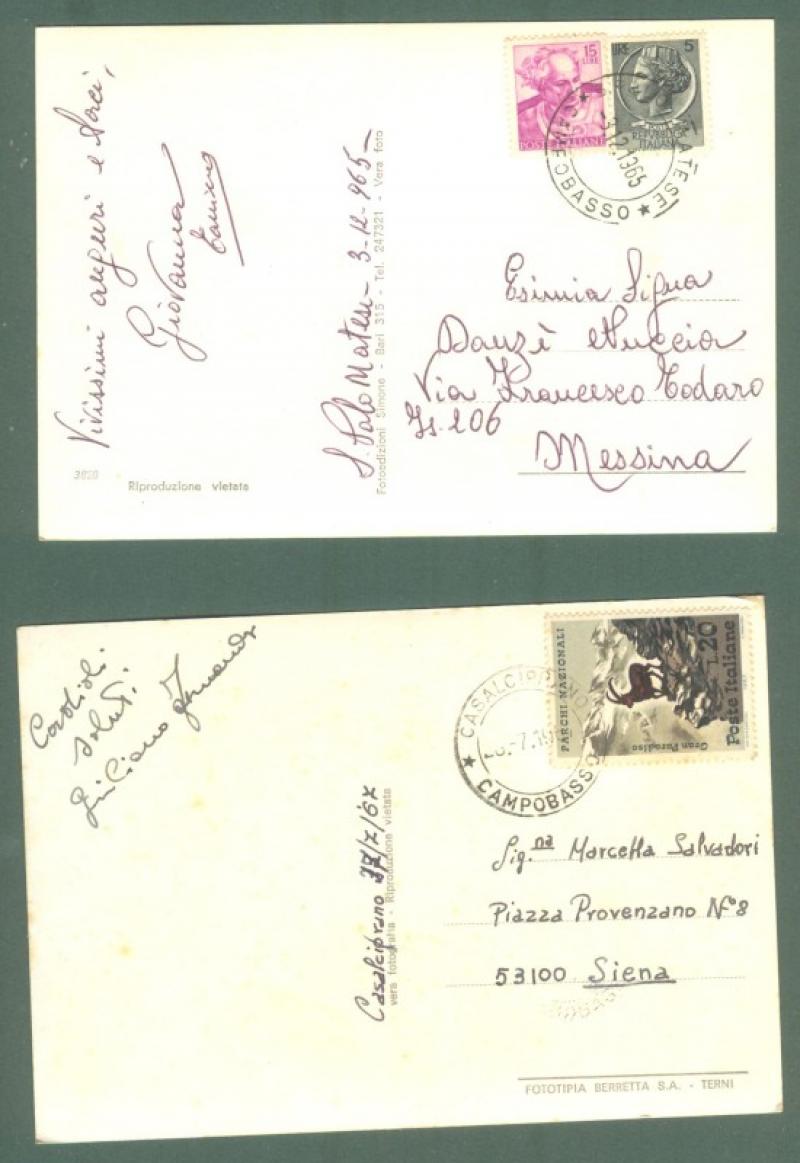 15
LIRE
POSTE ITALIANE
LIRE 5
POSTE
REPUBBLICA
ITALIANA
MATESE
3.12.1965
★ CAMPOBASSO ★
Vivissimi auguri e
Giovanna
S. Polo Matese - 3-12-965-
Fotoedizioni Simone - Bari 315 - Tel. 247321 - Vera foto
3828
Riproduzione vietata
Esimia Sig.na
Danzè Nuccia
Via Francesco Todaro
Is. 206
Messina
PARCHI NAZIONALI
Gran Paradiso
L.20
Poste Italiane
CASALCIPRANO
★ CAMPOBASSO
Cordiali
saluti
Giuliano
Casalciprano 27/7/67
vera fotografia - Riproduzione vietata
Sig.na Marcella Salvadori
Piazza Provenzano N°8
53100 Siena
FOTOTIPIA BERRETTA S.A. - TERNI